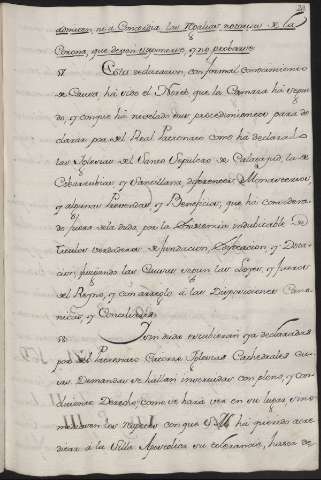 28
admiten, ni à Concordia las Regalias notorias de la
Corona, que deven suponerse, y no probarse.
57. Esta declaracion, con formal conocimiento
de Causa, há sido el Norte que la Camara há segui-
do, y con que há nivelado sus procedimientos para de-
clarar por del Real Patronato como há declarado
las Iglesias del Santo Sepulcro de Calatayud, la de
Covarrubias, y Santillana, diferentes Monasterios,
y algunas Prevendas, y Beneficios, que há considera-
do fuera de la duda, por la
titulos verdaderos de fundacion, y Dota-
cion, juzgando las Causas segun las Leyes, y fueros
del Reyno, y con arreglo à las Disposiciones Cano-
nicas, y Conciliares.
58. Sin duda estubieran ya declaradas
por del Patronato Catorce Iglesias Cathedrales cu-
yas Demandas se hallan instruidas con pleno, y con-
cluiente Derecho, como se hará ver en su lugar, si no
los respectos con que V.M. há querido acre-
ditar à la Silla Apostolica su tolerancia, hasta de